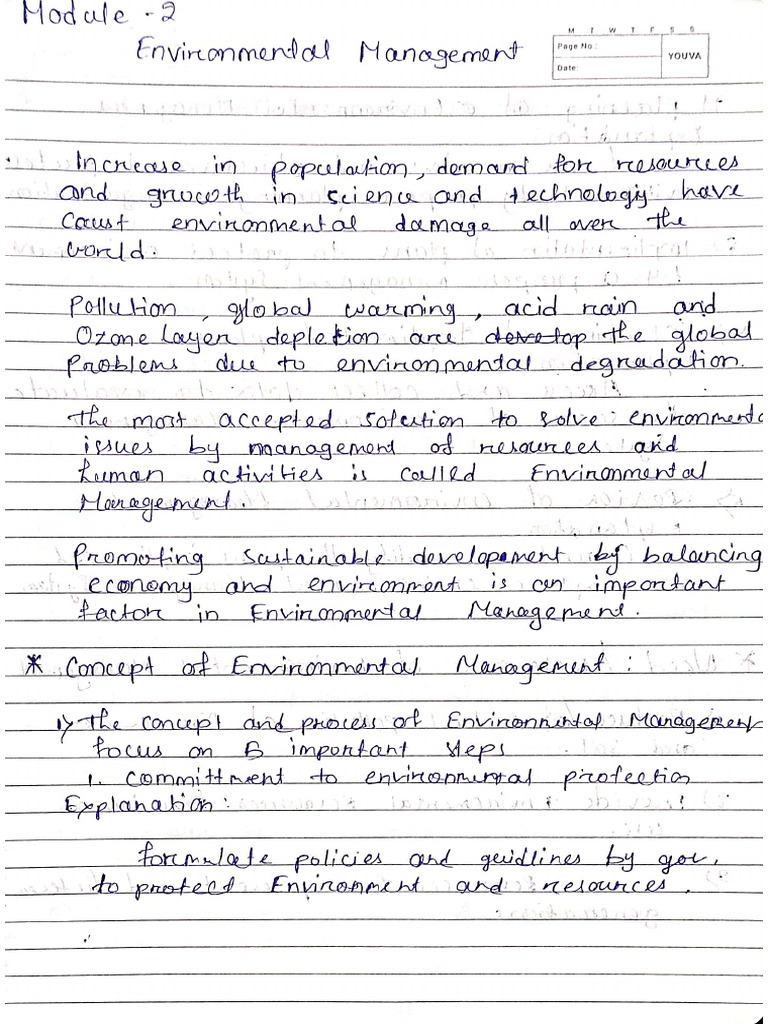 Module - 2
Environmental Management
M T W T F S S
Page No.:
Date:
YOUVA
Increase in population, demand for resources
and growth in science and technology have
Caust environmental damage all over the
world.
Pollution, global warming, acid rain and
Ozone Layer depletion are develop the global
Problems due to environmental degradation.
The most accepted solution to solve environmental
issues by management of resources and
human activities is called Environmental
Management.
Promoting Sustainable development by balancing
economy and environment is an important
factor in Environmental Management.
* Concept of Environmental Management :
1) The concept and process of Environmental Management
focus on 5 important steps
1. Committment to environmental protection
Explanation :
formulate policies and guidlines by gov.
to protect Environment and resources.